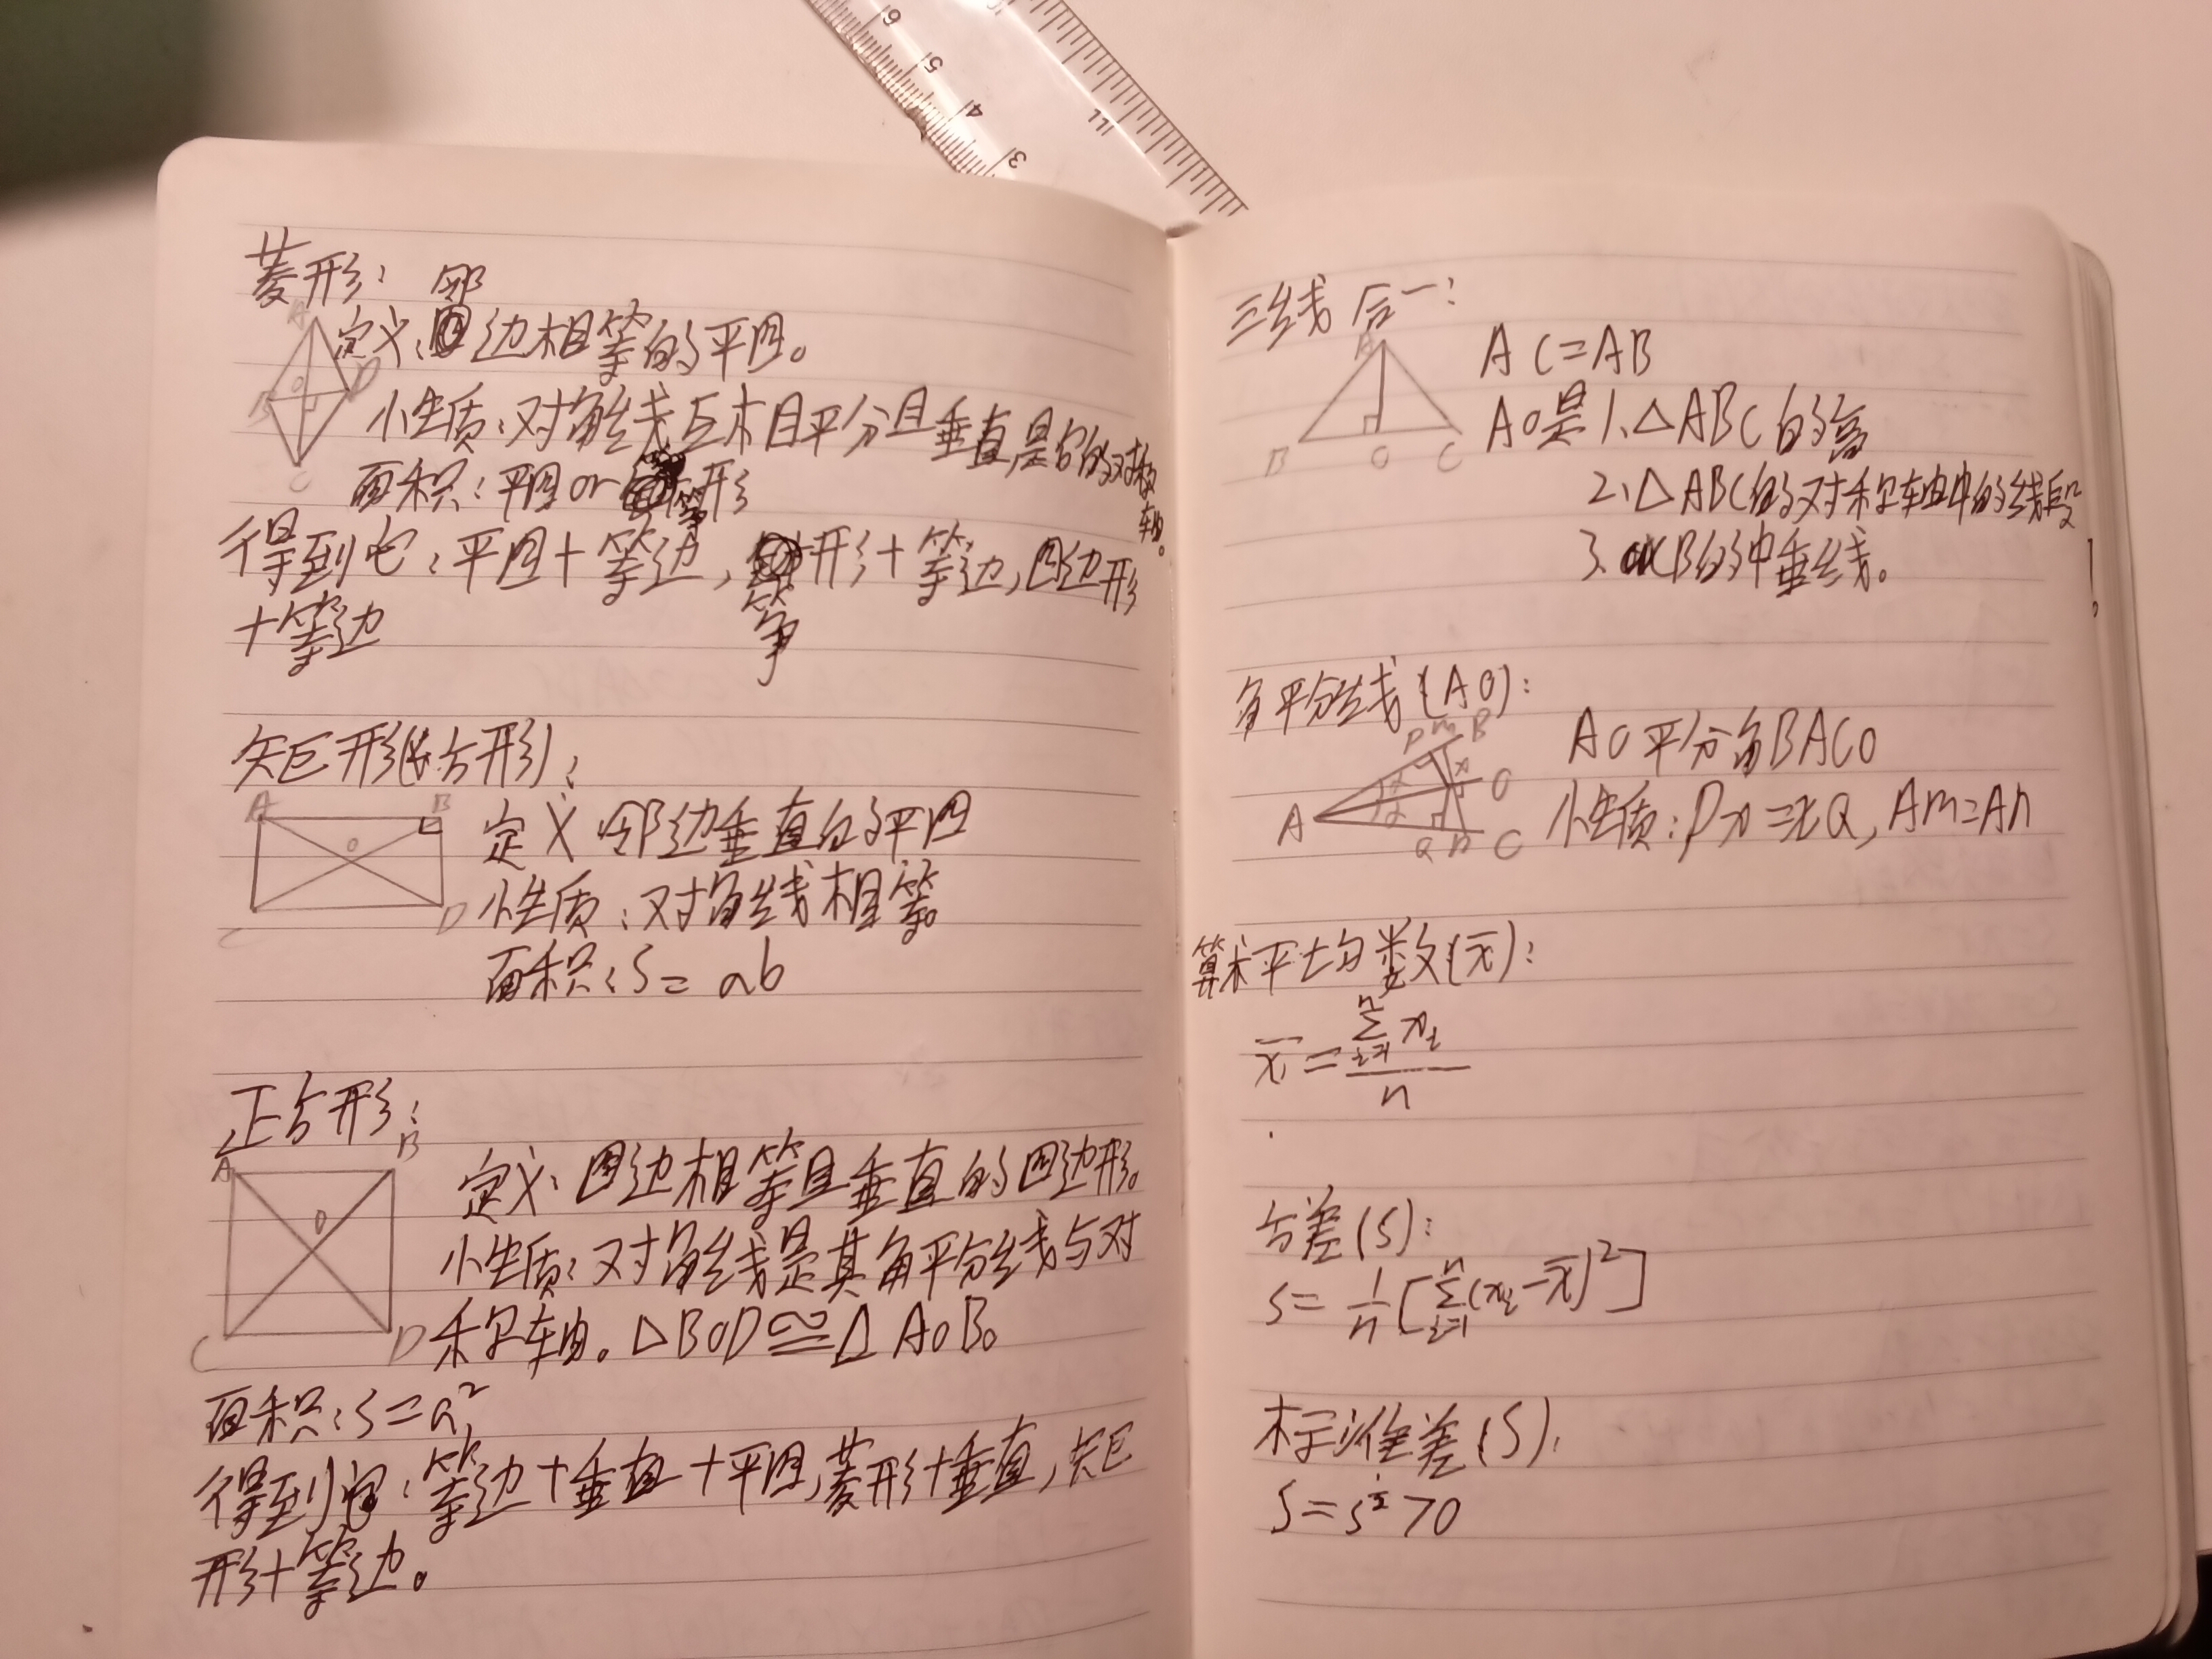 菱形：
邻
定义：边相等的平四。
性质：对角线互相平分且垂直,是它的对称轴。
面积：平四or筝形
得到它：平四+等边,筝形+等边,四边形
+等边
A
B
O
D
C
矩形(长方形)：
定义 邻边垂直的平四
性质：对角线相等。
面积：S=ab
A
B
O
C
D
正方形：
定义：四边相等且垂直的四边形。
性质：对角线是其角平分线与对
称轴。△BOD≌△AOB。
面积：S=a²
得到它：等边+垂直+平四,菱形+垂直,矩
形+等边。
A
B
O
C
D
三线合一：
AC=AB
AO是1、△ABC的高
2、△ABC的对称轴中的线段
3、CB的中垂线。
A
B
O
C
角平分线(AO)：
AO平分角BAC。
性质：Px=xQ,Am=An
P m B
x
O
A
Q n C
算术平均数(x̄)：
x̄=∑ⁿᵢ₌₁xᵢ/n
方差(S)：
S=1/n[∑ⁿᵢ₌₁(xᵢ-x̄)²]
标准差(S)：
S=S^½>0
6
5
4
3
11
10